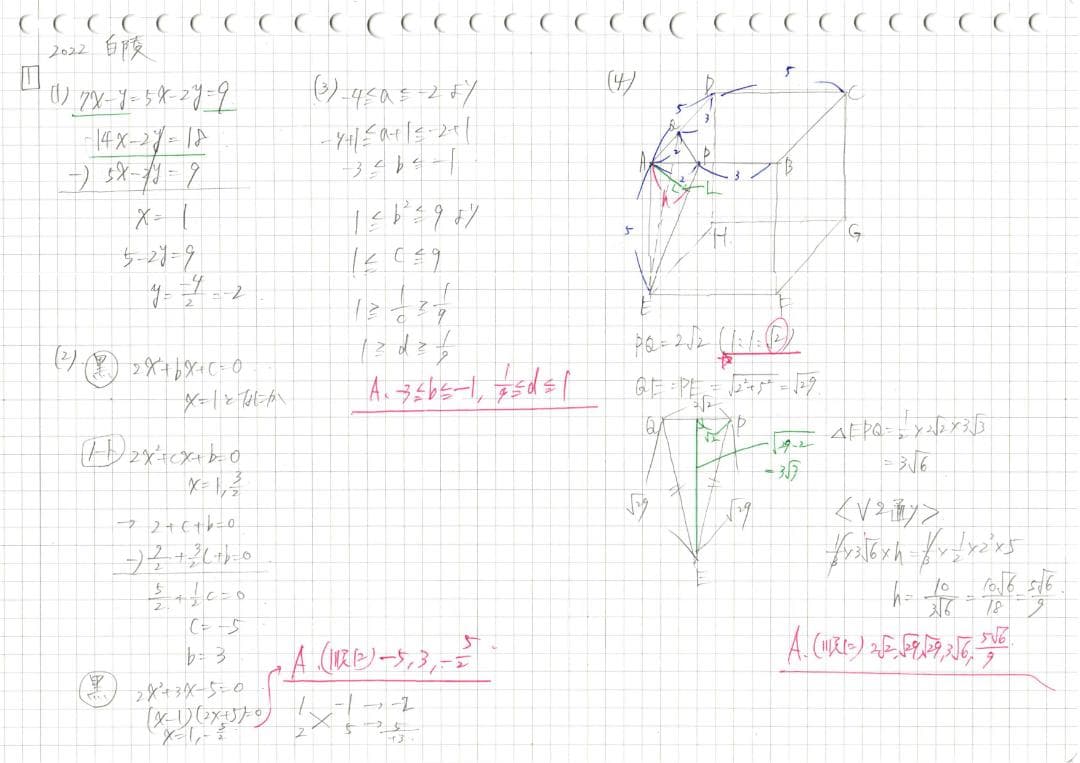 2022 白陵
1
(1) 7x-y=5x-2y=9
14x-2y=18
-) 5x-2y=9
x=1
5-2y=9
y=-4/2=-2
(2) 黒 2x²+bx+c=0
x=1となにか
2x²+cx+b=0
x=1, 3/2
→ 2+c+b=0
-) 9/2+3/2c+b=0
5/2+1/2c=0
c=-5
b=3
黒 2x²+3x-5=0
(x-1)(2x+5)=0
x=1, -5/2
A. (順に) -5, 3, -5/2
1 -1 → -2
2 5 → 5
+3
(3) -4≦a≦-2より
-4+1≦a+1≦-2+1
-3≦b≦-1
1≦b²≦9より
1≦c≦9
1≧1/c≧1/9
1≧d≧1/9
A. -3≦b≦-1, 1/9≦d≦1
(4)
D 5 C
5
Q 3
2
A P B
2 3
h L
5
H G
E F
PQ=2√2 (1:1:√2)
QE=PE=√2²+5²=√29
2√2
Q √2 P
√29-2
=3√3
√29 √29
E
△EPQ=1/2×2√2×3√3
=3√6
<V2通り>
1/3×3√6×h=1/3×1/2×2²×5
h=10/3√6=10√6/18=5√6/9
A. (順に) 2√2, √29, √29, 3√6, 5√6/9